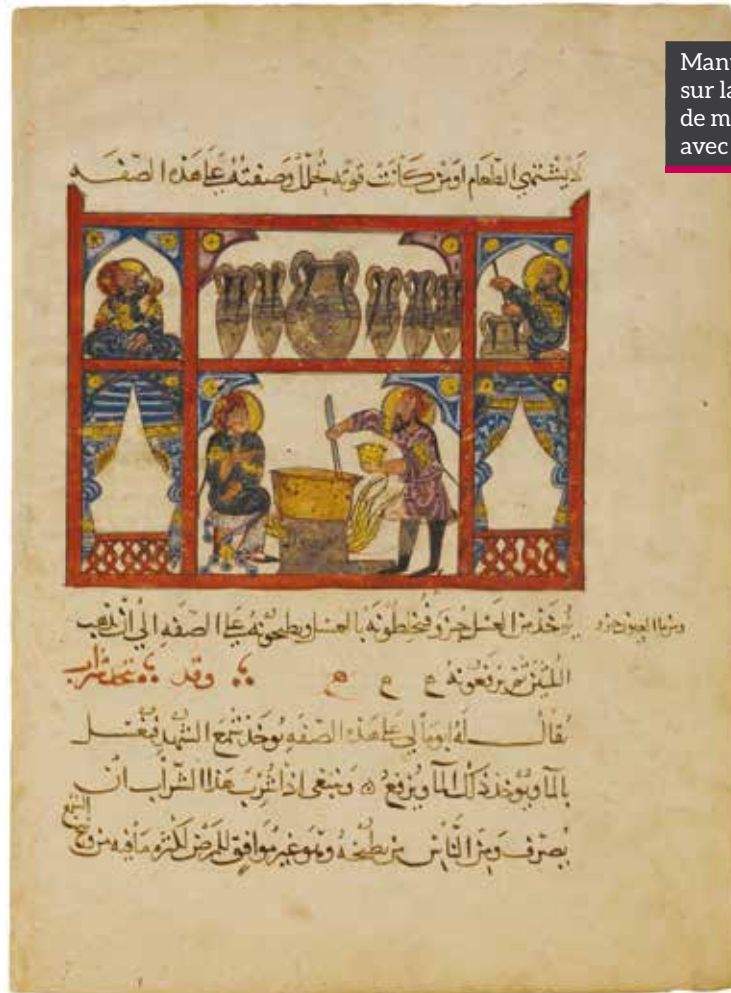 Man
sur la
de m
avec
لا يشتهي الطعام او من كانت قوته خلل وصفته على هذه الصفه
يوخذ من العسل جزو فيخلطونه بالعسل ويطبخونه على الصفه الي ان يذهب
ومن ما العيون جزو
الثلثين ثم يرفعونه وقد يتخذ شراب
يقال له ابومالي على هذه الصفه يوخذ شمع الشهد فيغسل
بالما ويوخذ ذلك الما ويرفع وينبغي اذا شرب هذا الشراب ان
يصرف ومن الناس من يطبخه وهو غير موافق للمرض لكثره ما فيه من وسخ
الشمع